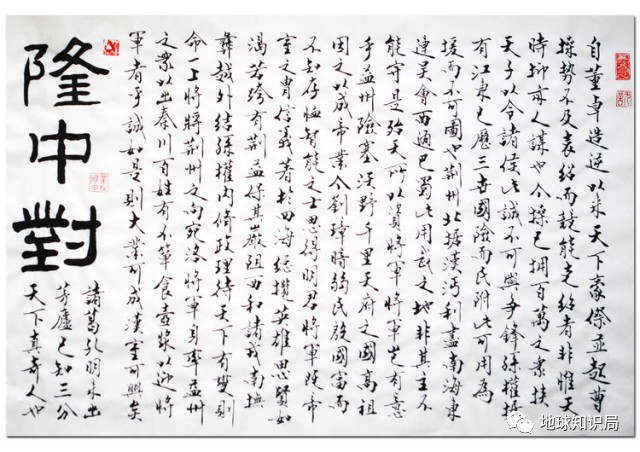 自董卓造逆以來天下豪傑並起曹
操勢不及袁紹而競能克紹者非惟天
時抑亦人謀也今操已擁百萬之衆挾
天子以令諸侯此誠不可與爭鋒孫權據
有江東已歷三世國險而民附此可用為
援而不可圖也荊州北據漢沔利盡南海東
連吳會西通巴蜀此用武之地非其主不
能守是殆天所以資將軍將軍豈有意
乎益州險塞沃野千里天府之國高祖
因之以成帝業今劉璋暗弱民殷國富而
不知存恤智能之士思得明君將軍既帝
室之胄信義著於四海總攬英雄思賢如
渴若跨有荊益保其巖阻西和諸戎南撫
彝越外結孫權內修政理待天下有變則
命一上將將荊州之向宛洛將軍身率益州
之衆以出秦川百姓有不簞食壺漿以迎將
軍者乎誠如是則大業可成漢室可興矣
隆中對
諸葛孔明未出
茅廬已知三分
天下真奇人也
地球知识局